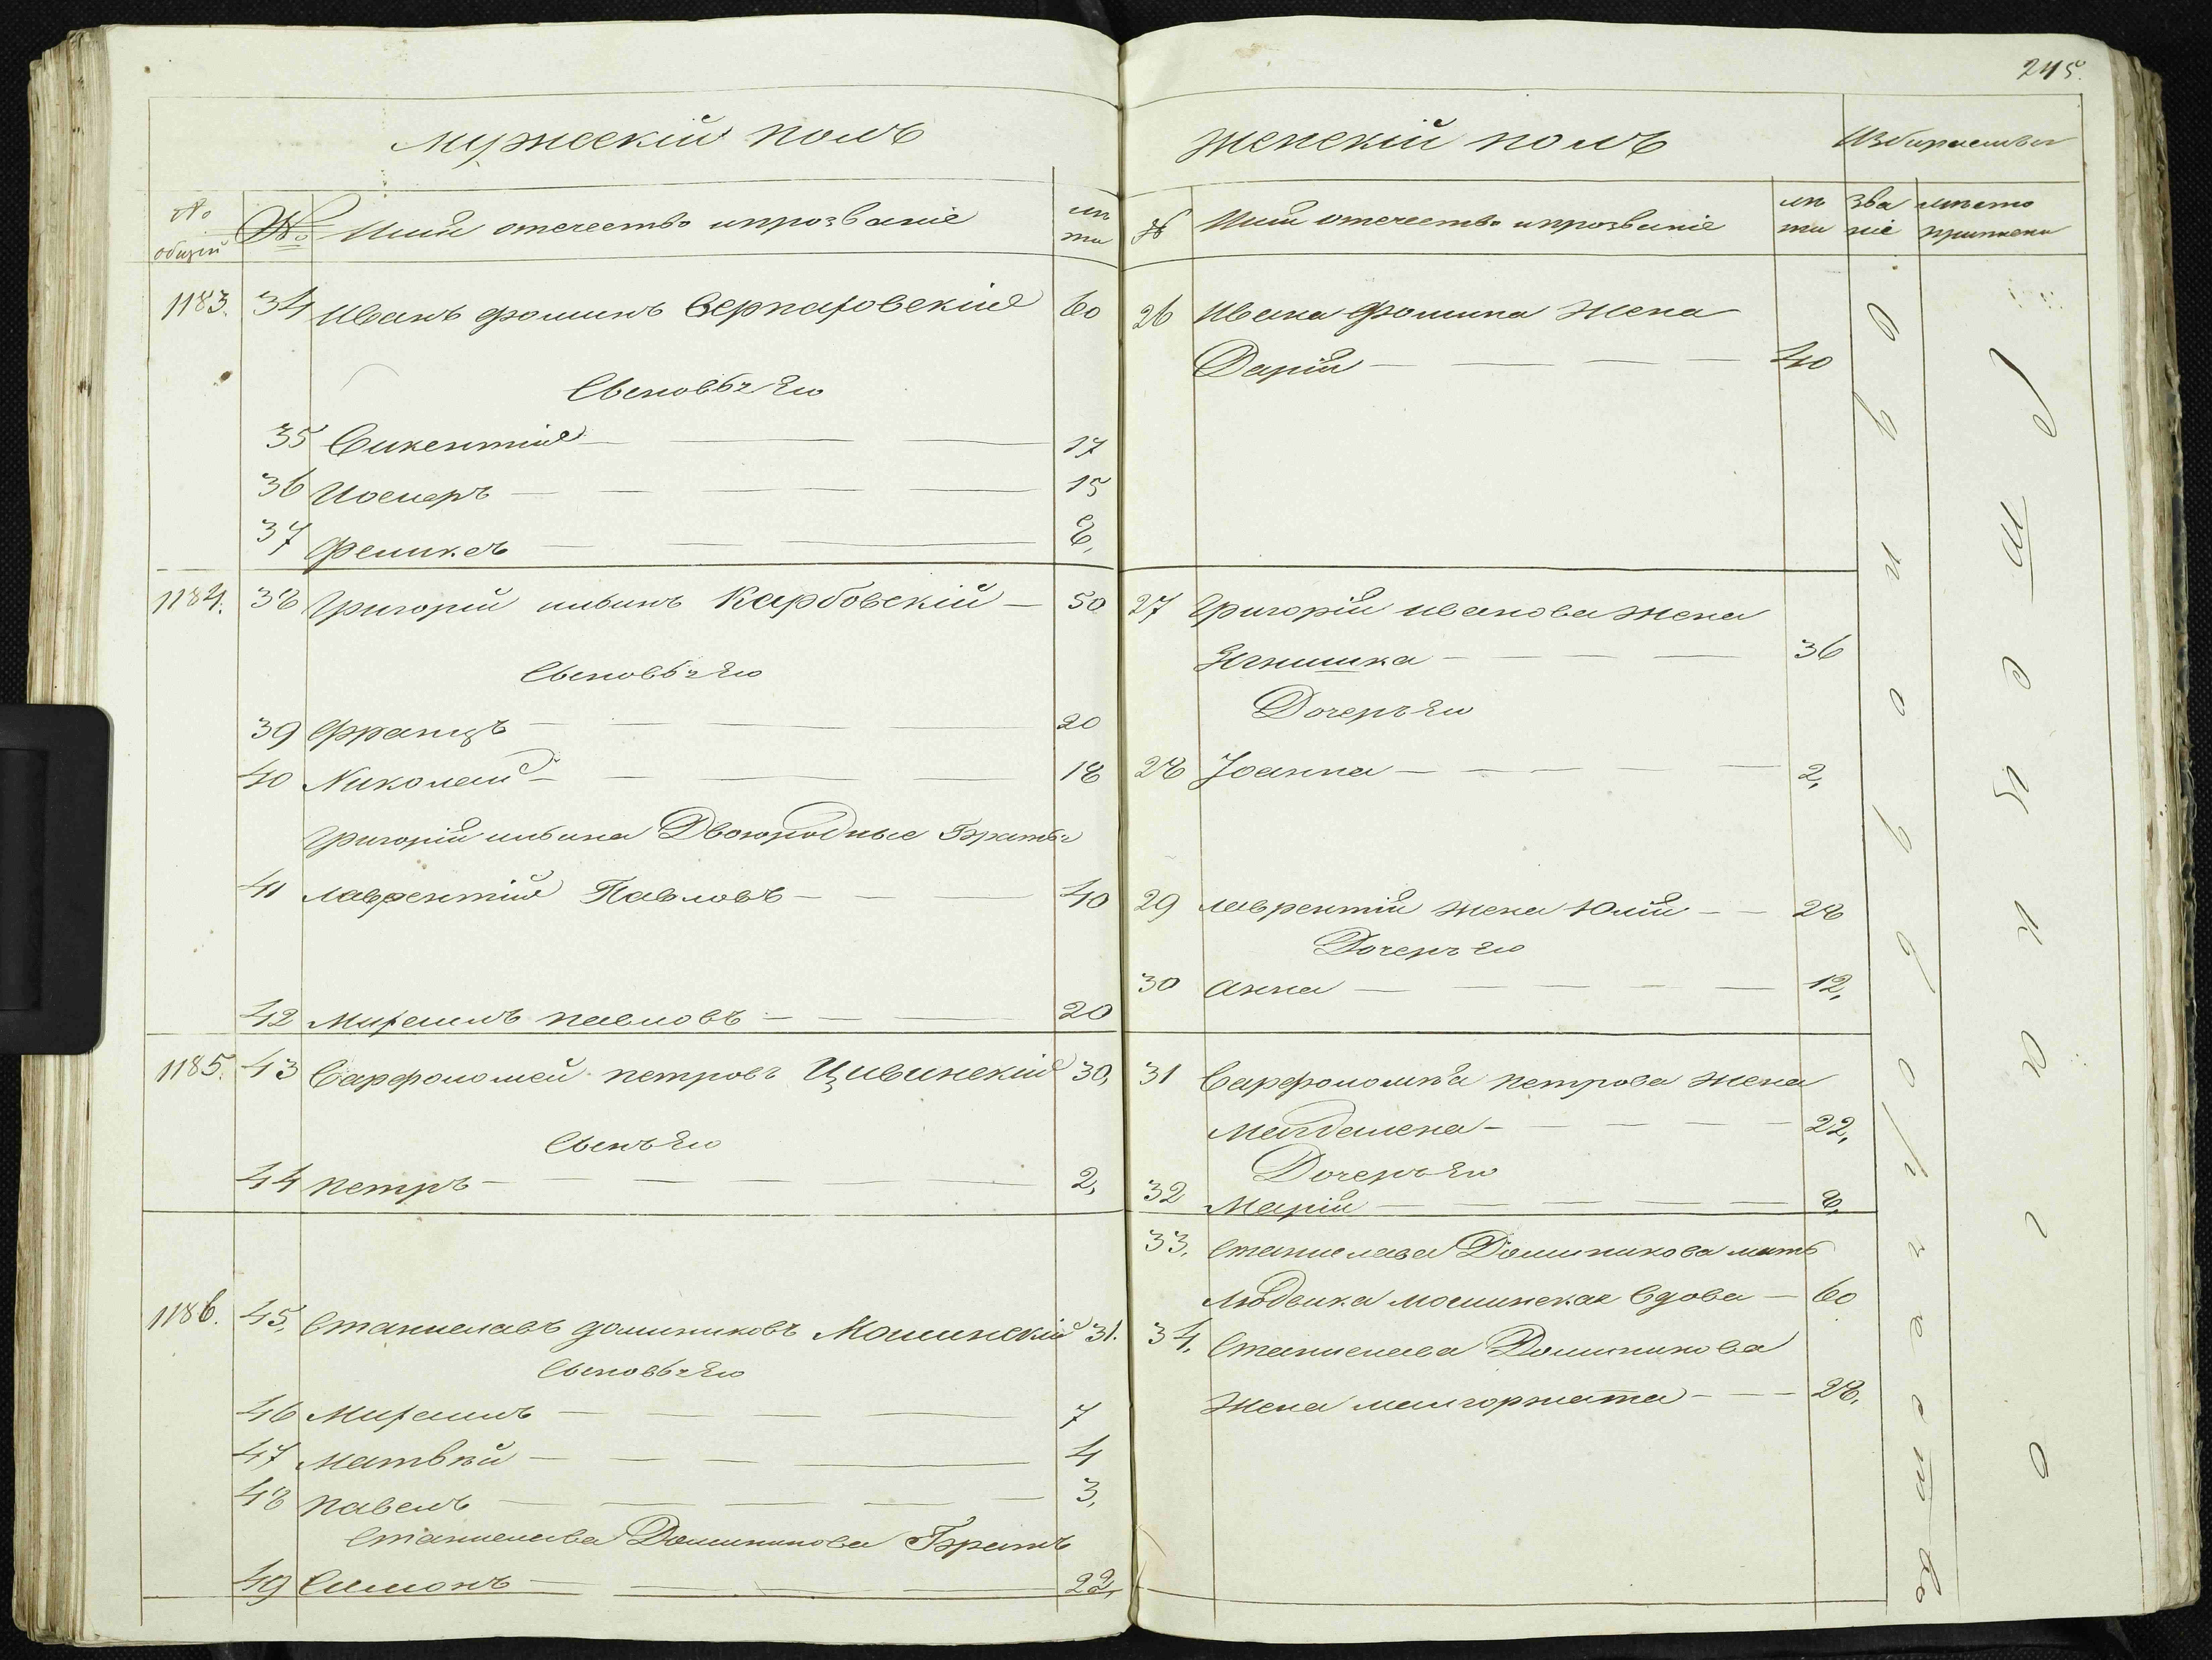 245.
Мужескій полъ
№ общій
№
Имя отечество и прозваніе
лѣта
1183. 34 Иванъ Фоминъ Серпаховскій 60
Сыновья Его
35 Викентій 17
36 Иосифъ 15
37 Феликсъ 8,
1184. 38 Григорій ильинъ Карбовскій 50
Сыновья Его
39 Францъ 20
40 Николай 18
Григорія ильина Двоюродные Братья
41 Лаврентій Павловъ 40
42 Михаилъ павловъ 20
1185. 43 Варфоломей петровъ Цивинскій 30,
Сынъ Его
44 петръ 2,
1186. 45, Станиславъ доминиковъ Мошинскій 31.
Сыновья Его
46 Михаилъ 7
47 Матвѣй 4
48 павелъ 3,
Станислава Доминикова Братъ
49 Симонъ 22,
Женскій полъ
№
Имя отечество и прозваніе
лѣта
званіе
мѣсто
26 Ивана Фомина Жена
Дарія 40
27 Григорія иванова жена
Ягнишка 36
Дочерь Ею
28 Іоанна 2,
29 лаврентія жена Юлія 28
Дочерь Ею
30 анна 12,
31 Варфоломѣя петрова жена
Магдалена 22,
Дочерь Ею
32 Марія 8,
33. Станислава Доминикова мать
Людвика мошинская вдова 60
34, Станислава Доминикова
Жена малгоржата 28,